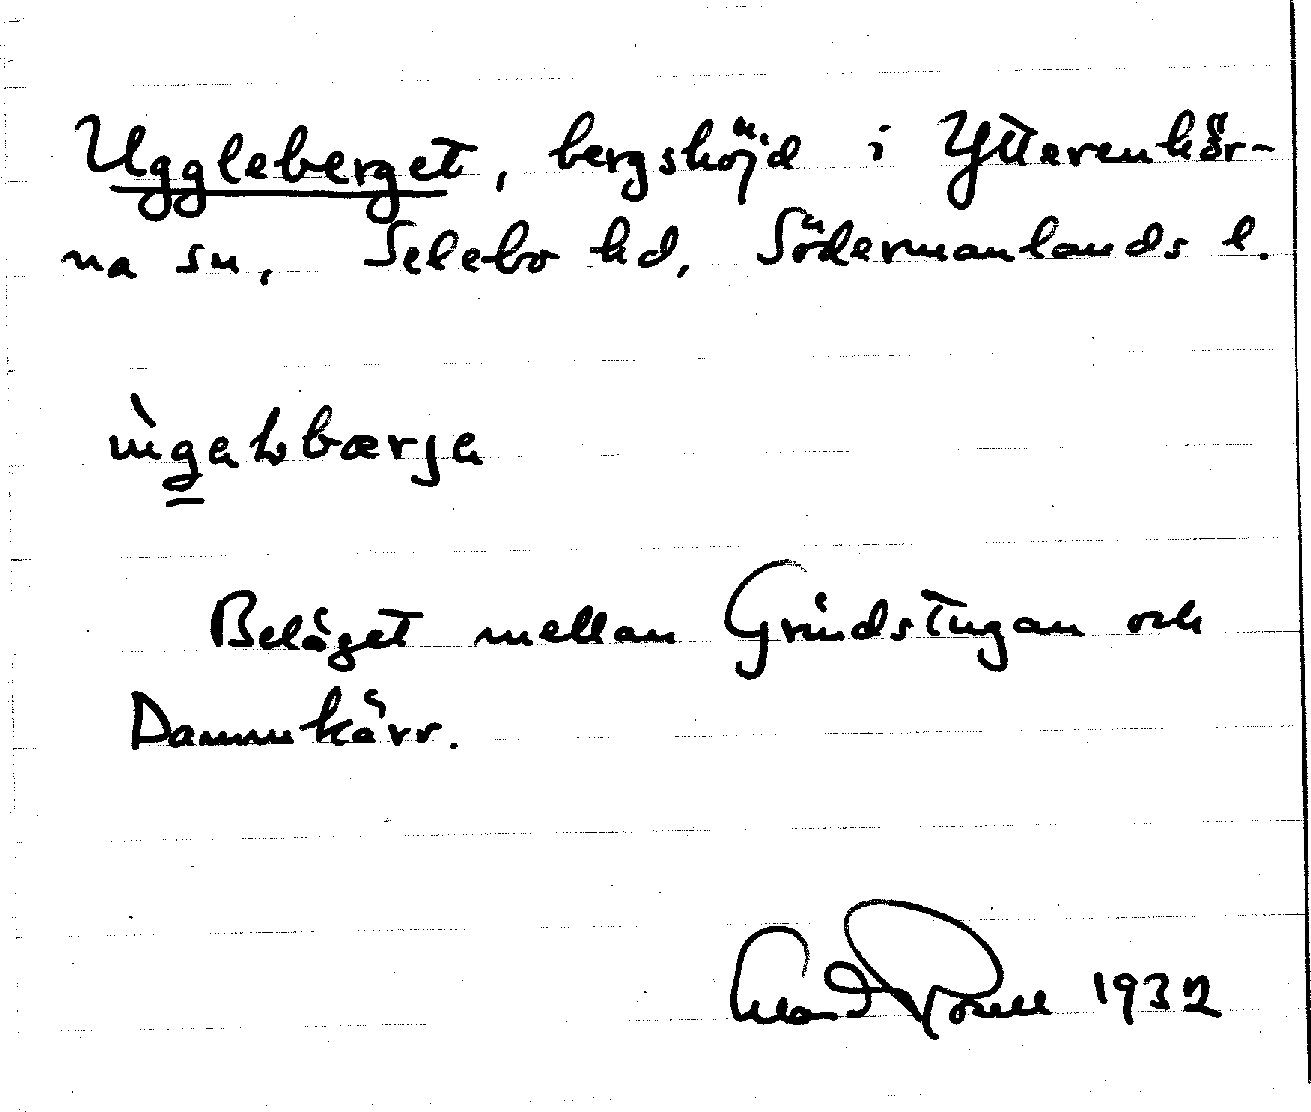 Uggleberget, bergshöjd i Ytterenhör-
na sn, Selebo hd, Södermanlands l.
Beläget mellan Grindstugan och
Dammkärr.
1932